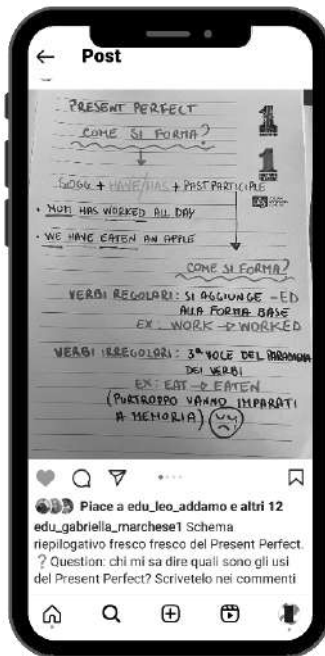 Post
PRESENT PERFECT
COME SI FORMA?
SOGG + HAVE/HAS + PAST PARTICIPLE
• MUM HAS WORKED ALL DAY
• WE HAVE EATEN AN APPLE
COME SI FORMA?
VERBI REGOLARI: SI AGGIUNGE -ED
ALLA FORMA BASE
EX: WORK → WORKED
VERBI IRREGOLARI: 3ª VOCE DEL PARADIGMA
DEI VERBI
EX: EAT → EATEN
(PURTROPPO VANNO IMPARATI
A MEMORIA)
Piace a edu_leo_addamo e altri 12
edu_gabriella_marchese1 Schema
riepilogativo fresco fresco del Present Perfect.
? Question: chi mi sa dire quali sono gli usi
del Present Perfect? Scrivetelo nei commenti